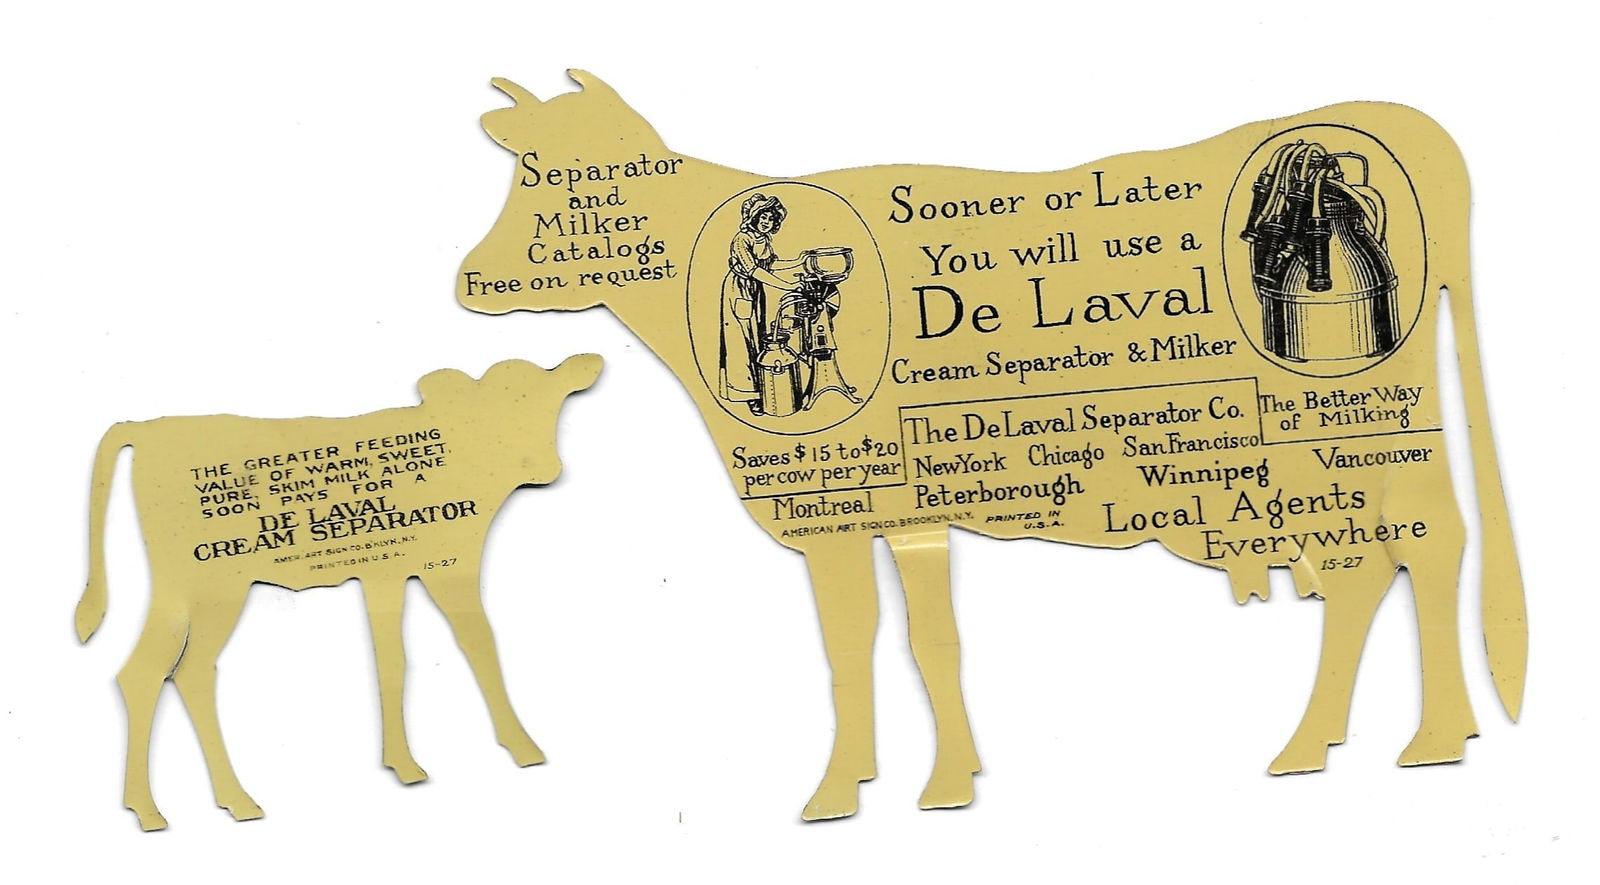 Separator
and
Milker
Catalogs
Free on request
Sooner or Later
You will use a
De Laval
Cream Separator & Milker
Saves $15 to $20
per cow per year
The De Laval Separator Co.
New York Chicago San Francisco
The Better Way
of Milking
Montreal Peterborough Winnipeg Vancouver
Local Agents
Everywhere
AMERICAN ART SIGN CO. BROOKLYN, N.Y.
PRINTED IN
U.S.A.
15-27
THE GREATER FEEDING
VALUE OF WARM, SWEET,
PURE, SKIM MILK ALONE
SOON PAYS FOR A
DE LAVAL
CREAM SEPARATOR
AMER. ART SIGN CO. B'KLYN, N.Y.
PRINTED IN U.S.A.
15-27